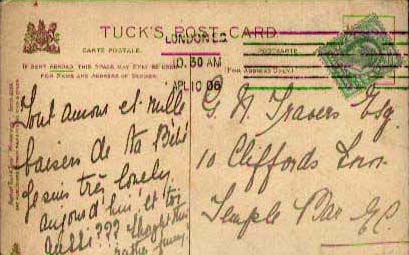 TUCK'S POST CARD
CARTE POSTALE.
POSTKARTE
IF SENT ABROAD THIS SPACE MAY ONLY BE USED
FOR NAME AND ADDRESS OF SENDER.
(FOR ADDRESS ONLY.)
LONDON E.C.
10.30 AM
APL 10 06
Tout amour et mille
baisers de ta Bébé
Je suis très lonely
aujourd'hui et toi
aussi??? thought this
rather funny.
G. N. Travers Esq.
10 Cliffords Inn
Temple Bar E.C.